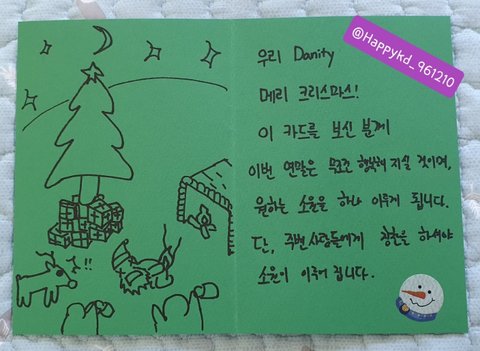 @Happykd_961210
우리 Danity
메리 크리스마스!
이 카드를 보신 분께
이번 연말은 무조건 행복해 지실 것이며,
원하는 소원을 하나 이루게 됩니다.
단, 주변 사람들에게 칭찬을 하셔야
소원이 이루어 집니다.
!!